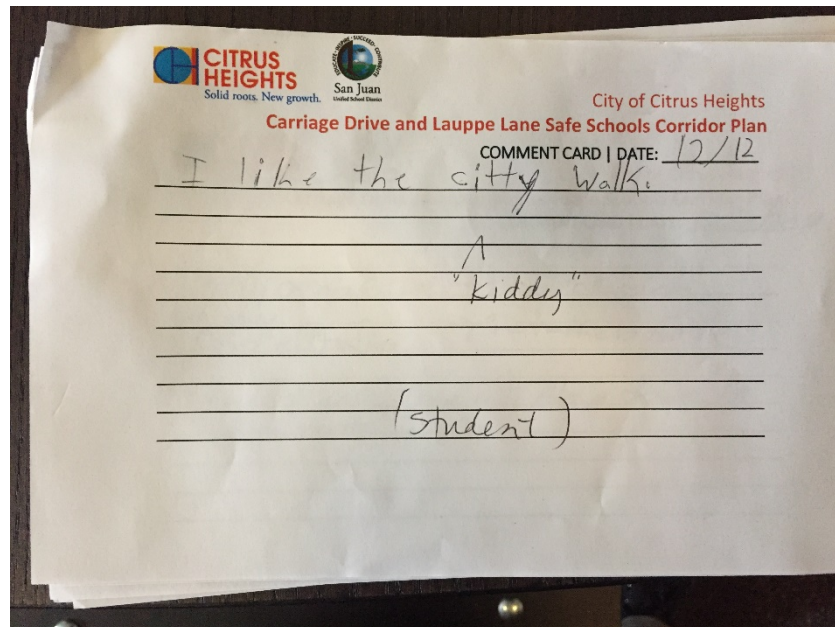 CITRUS
HEIGHTS
Solid roots. New growth.
EDUCATE · INSPIRE · SUCCEED · CONTRIBUTE
San Juan
Unified School District
City of Citrus Heights
Carriage Drive and Lauppe Lane Safe Schools Corridor Plan
COMMENT CARD | DATE: 12/12
I like the citty Walk.
"kiddy"
(student)